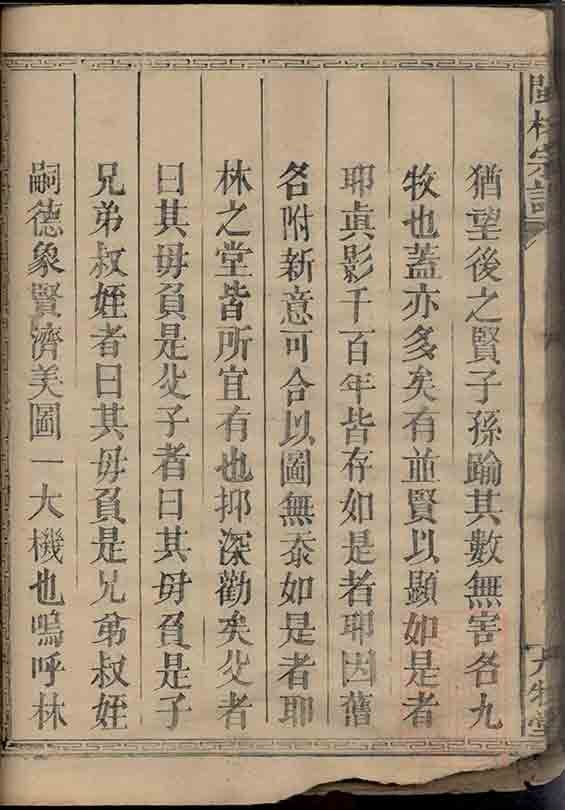 閩林宗譜
九牧堂
猶望後之賢子孫踰其數無害名九
牧也蓋亦多矣有並賢以顯如是者
耶眞影千百年皆存如是者耶因舊
名附新意可合以圖無忝如是者耶
林之堂皆所宜有也抑深勸矣父者
曰其毋負是父子者曰其毋負是子
兄弟叔姪者曰其毋負是兄弟叔姪
嗣德象賢濟美圖一大機也嗚呼林